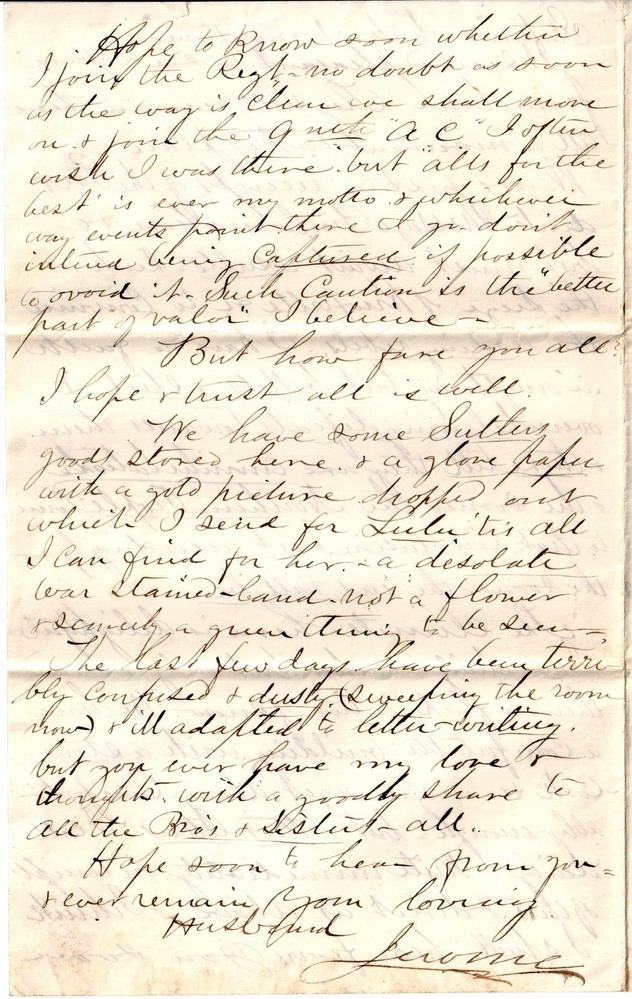 Hope to know soon whether
I join the Regt - no doubt as soon
as the way is "clear" we shall move
on & join the 9nth "A C" I often
wish I was there but "alls for the
best" is ever my motto & whichever
way events point there I go. don't
intend being Captured if possible
to avoid it - Such Caution is the "better
part of valor" I believe -
But how fare you all?
I hope & trust all is well.
We have some Sutlers
goods stored here. & a glove paper
with a gold picture dropped out
which I send for Lulu 'tis all
I can find for her. - a desolate
war stained - land - not a flower
& scarcely a green thing to be seen -
The last few days have been terri-
bly confused & dusty (sweeping the room
now) & ill adapted to letter-writing.
but you ever have my love &
thoughts. with a goodly share to
all the Bro's & Sisters - all.
Hope soon to hear from you =
& ever remain Your loving
Husband
Jerome